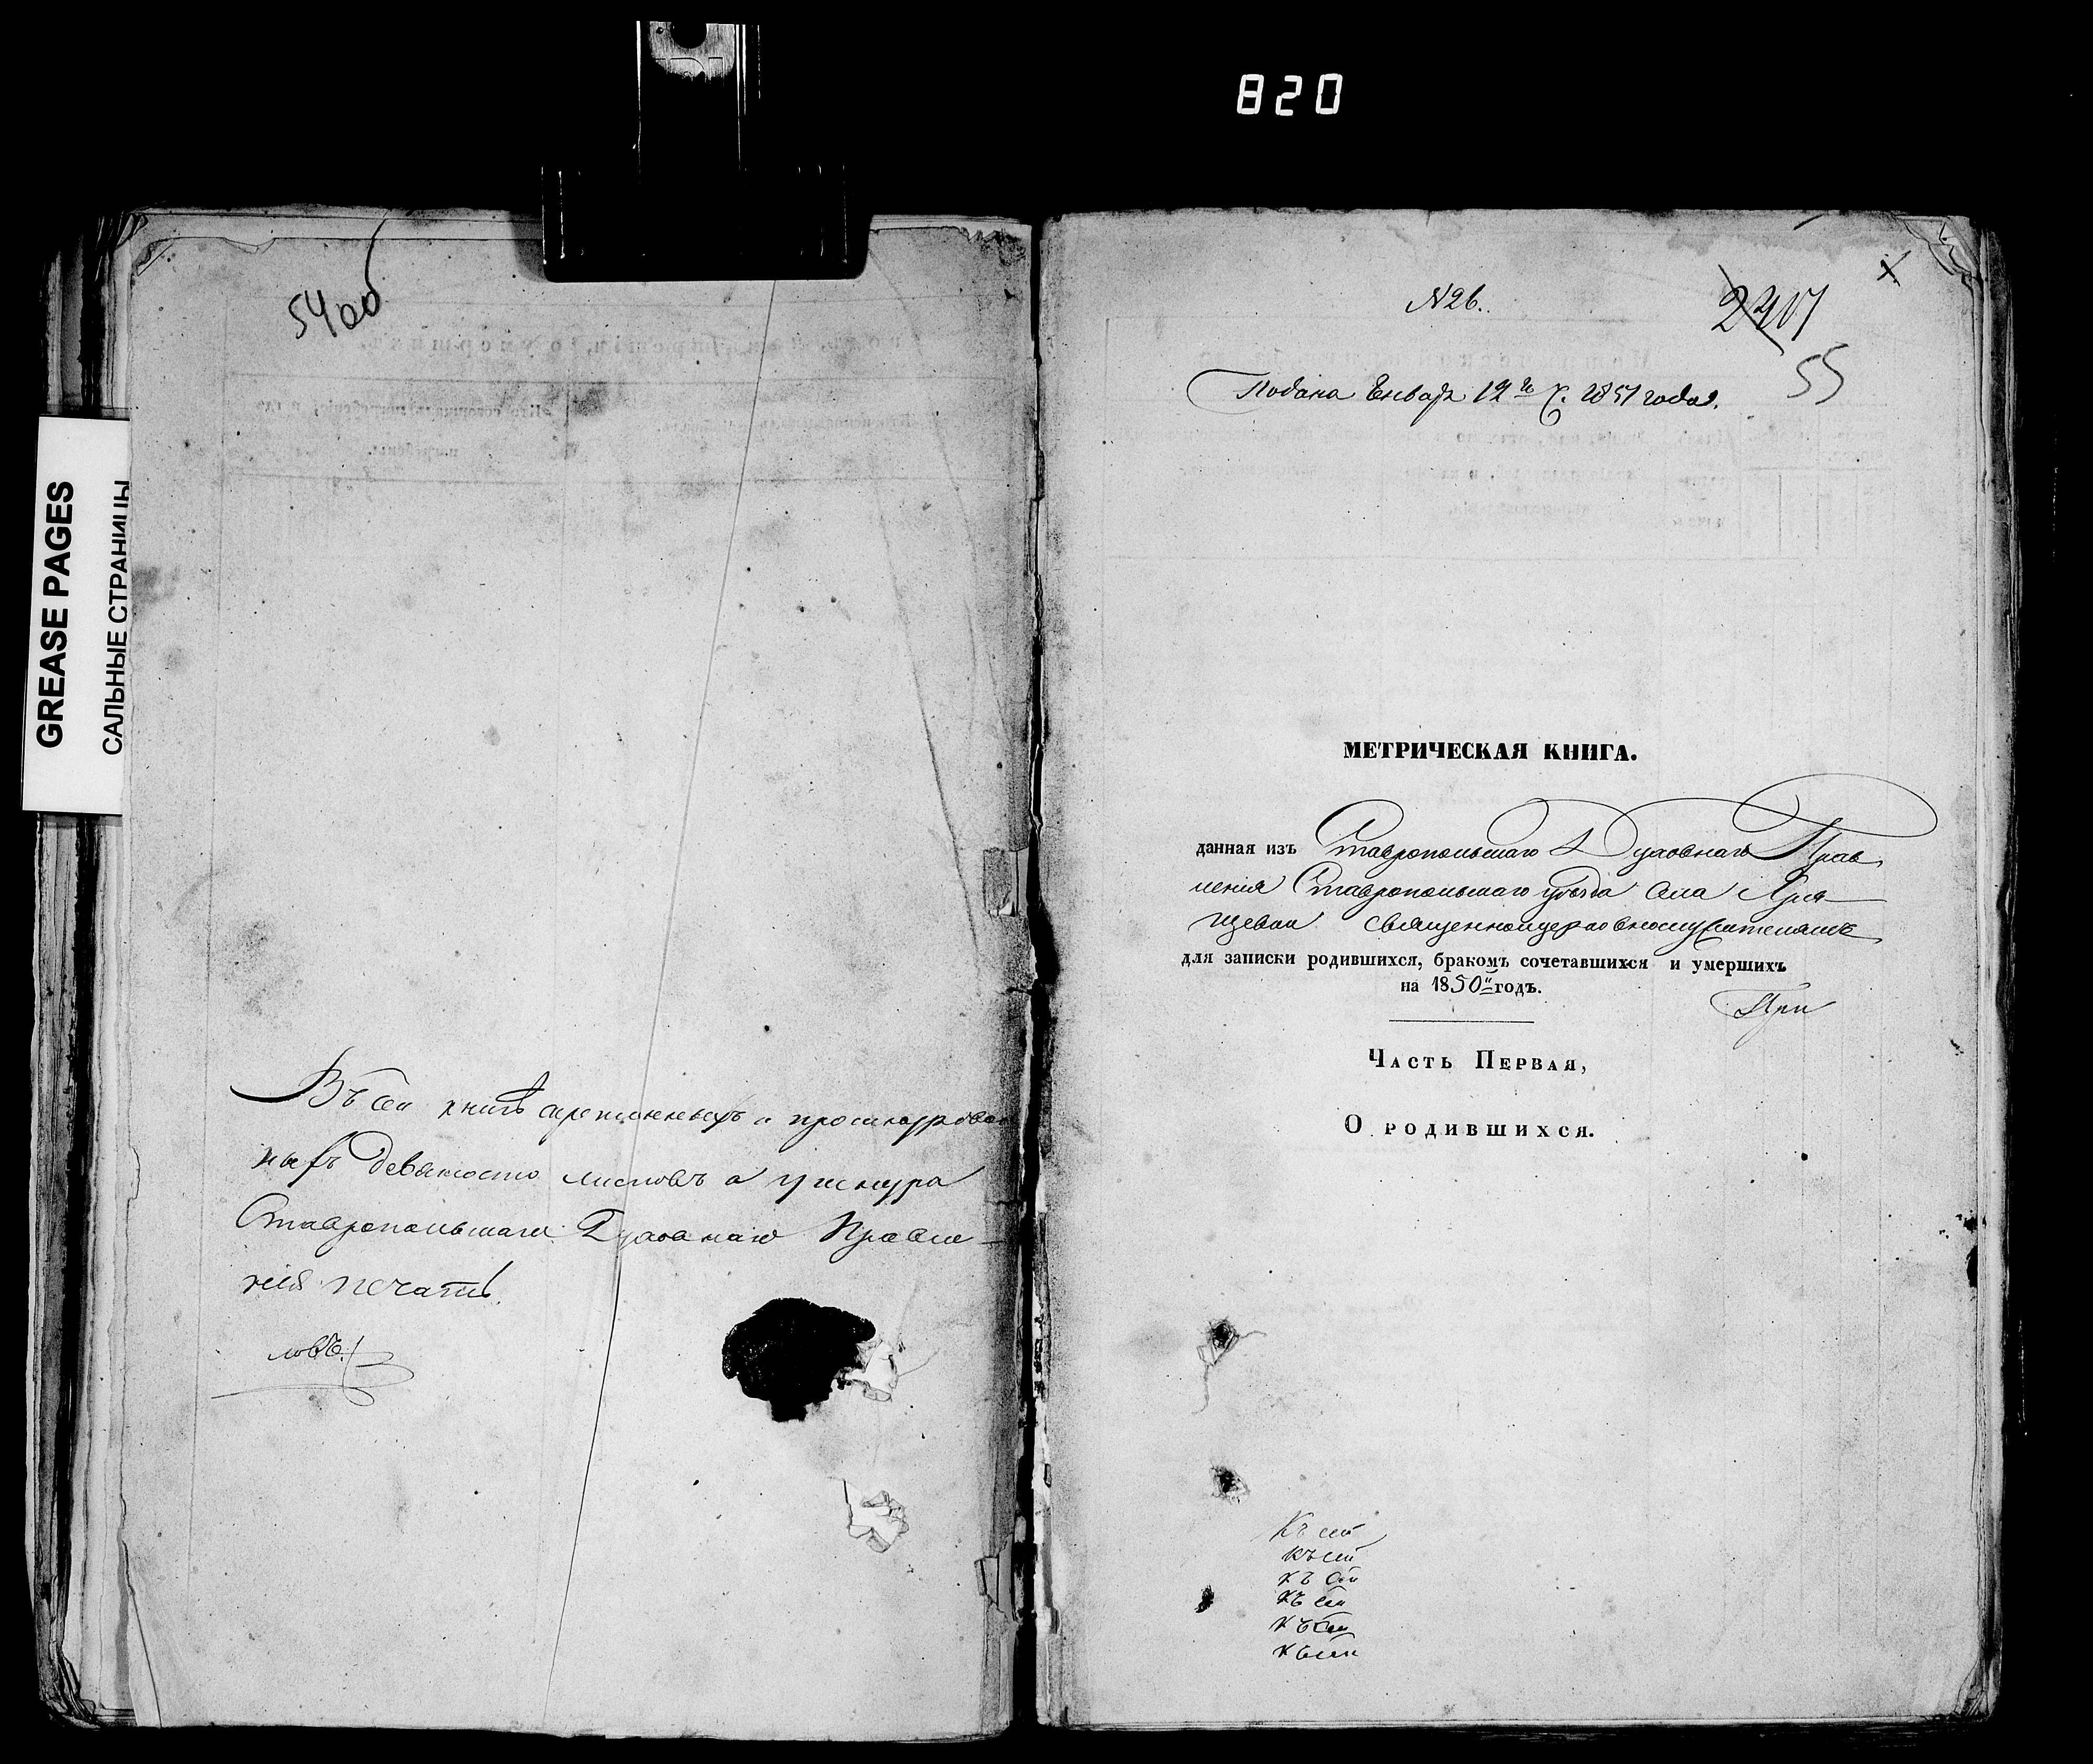 820
GREASE PAGES
САЛЬНЫЕ СТРАНИЦЫ
5400
Въ сей книгѣ скрепленныхъ и прошнурован
ныхъ девяносто листовъ а у шнура
Ставропольскаго Духовнаго Правле-
нія печать.
ловъ.
N 26.
55
Подана Енваря 12го ч. 1851 года.
МЕТРИЧЕСКАЯ КНИГА.
данная изъ Ставропольскаго Духовнаго Прав
ленія Ставропольскаго уѣзда села Хря
щевки священноцерковнослужителямъ
для записки родившихся, бракомъ сочетавшихся и умершихъ
на 1850й годъ.
При
Часть Первая,
О родившихся.
Къ сей
къ сей
къ сей
къ сей
къ сей
къ сей